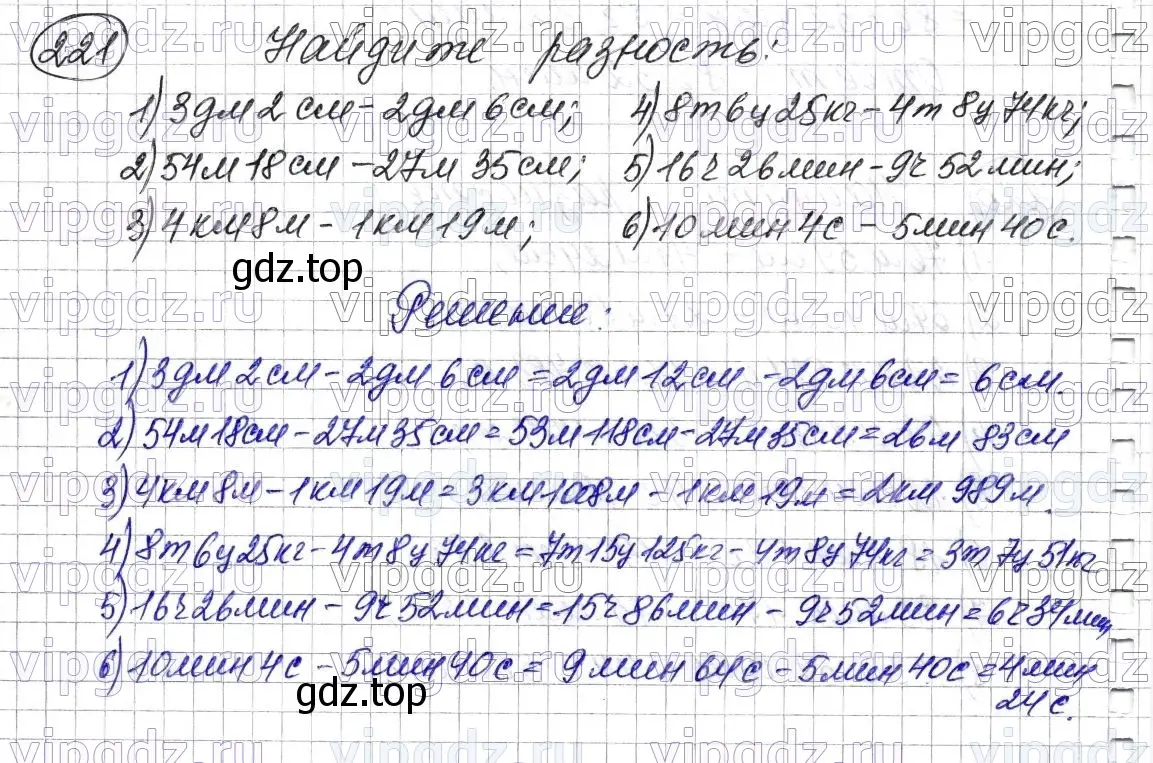 221 Найдите разность:
1) 3дм 2см - 2дм 6см; 4) 8т 6ц 25кг - 4т 8ц 74кг;
2) 54м 18см - 27м 35см; 5) 16ч 26мин - 9ч 52мин;
3) 4км 8м - 1км 19м; 6) 10мин 4с - 5мин 40с.
gdz.top
Решение:
1) 3дм 2см - 2дм 6см = 2дм 12см - 2дм 6см = 6см.
2) 54м 18см - 27м 35см = 53м 118см - 27м 35см = 26м 83см
3) 4км 8м - 1км 19м = 3км 1008м - 1км 19м = 2км 989м.
4) 8т 6ц 25кг - 4т 8ц 74кг = 7т 15ц 125кг - 4т 8ц 74кг = 3т 7ц 51кг
5) 16ч 26мин - 9ч 52мин = 15ч 86мин - 9ч 52мин = 6ч 34мин
6) 10мин 4с - 5мин 40с = 9мин 64с - 5мин 40с = 4мин
24с.
gdz.top